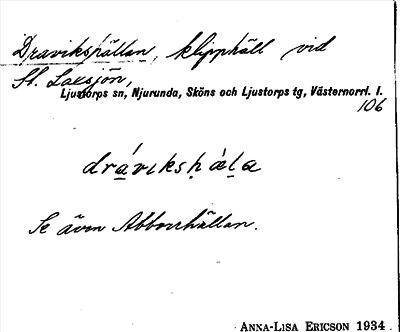 Dravikshällan, klipphäll vid
St. Laxsjön,
Ljustorps sn, Njurunda, Sköns och Ljustorps tg, Västernorrl. l.
106
drá̱vıksḥǽḻa
Se även Abborrhällan.
ANNA-LISA ERICSON 1934.